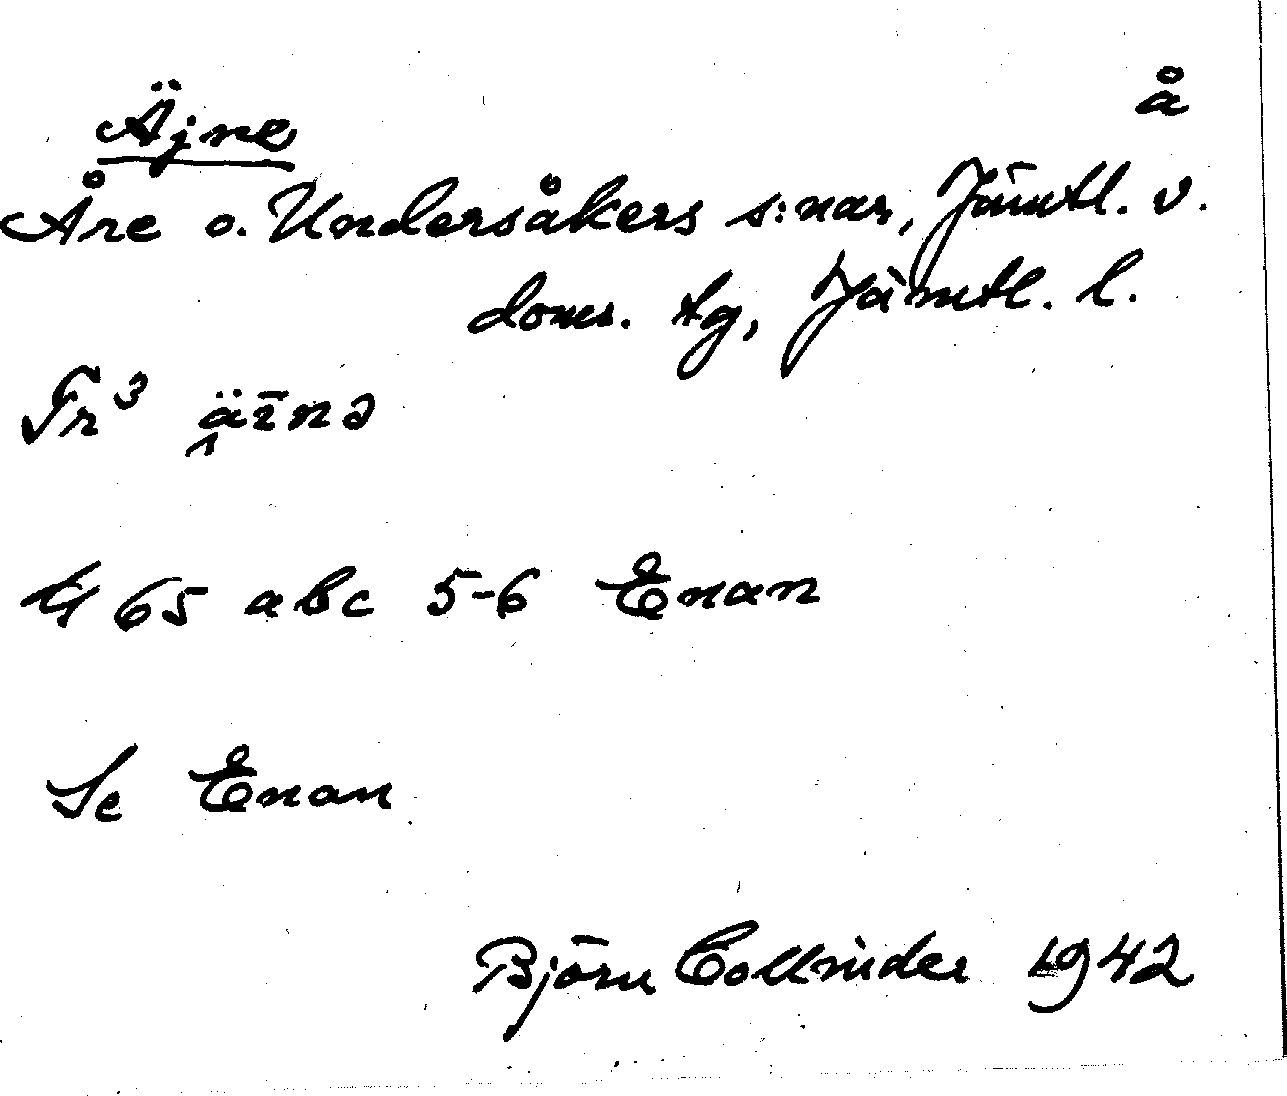 Äjne å
Åre o. Undersåkers s:nar, Jämtl. v.
doms. tg, Jämtl. l.
Fr³ äīnə
465 abc 5-6 Enan
Se Enan
Björn Collinder 1942